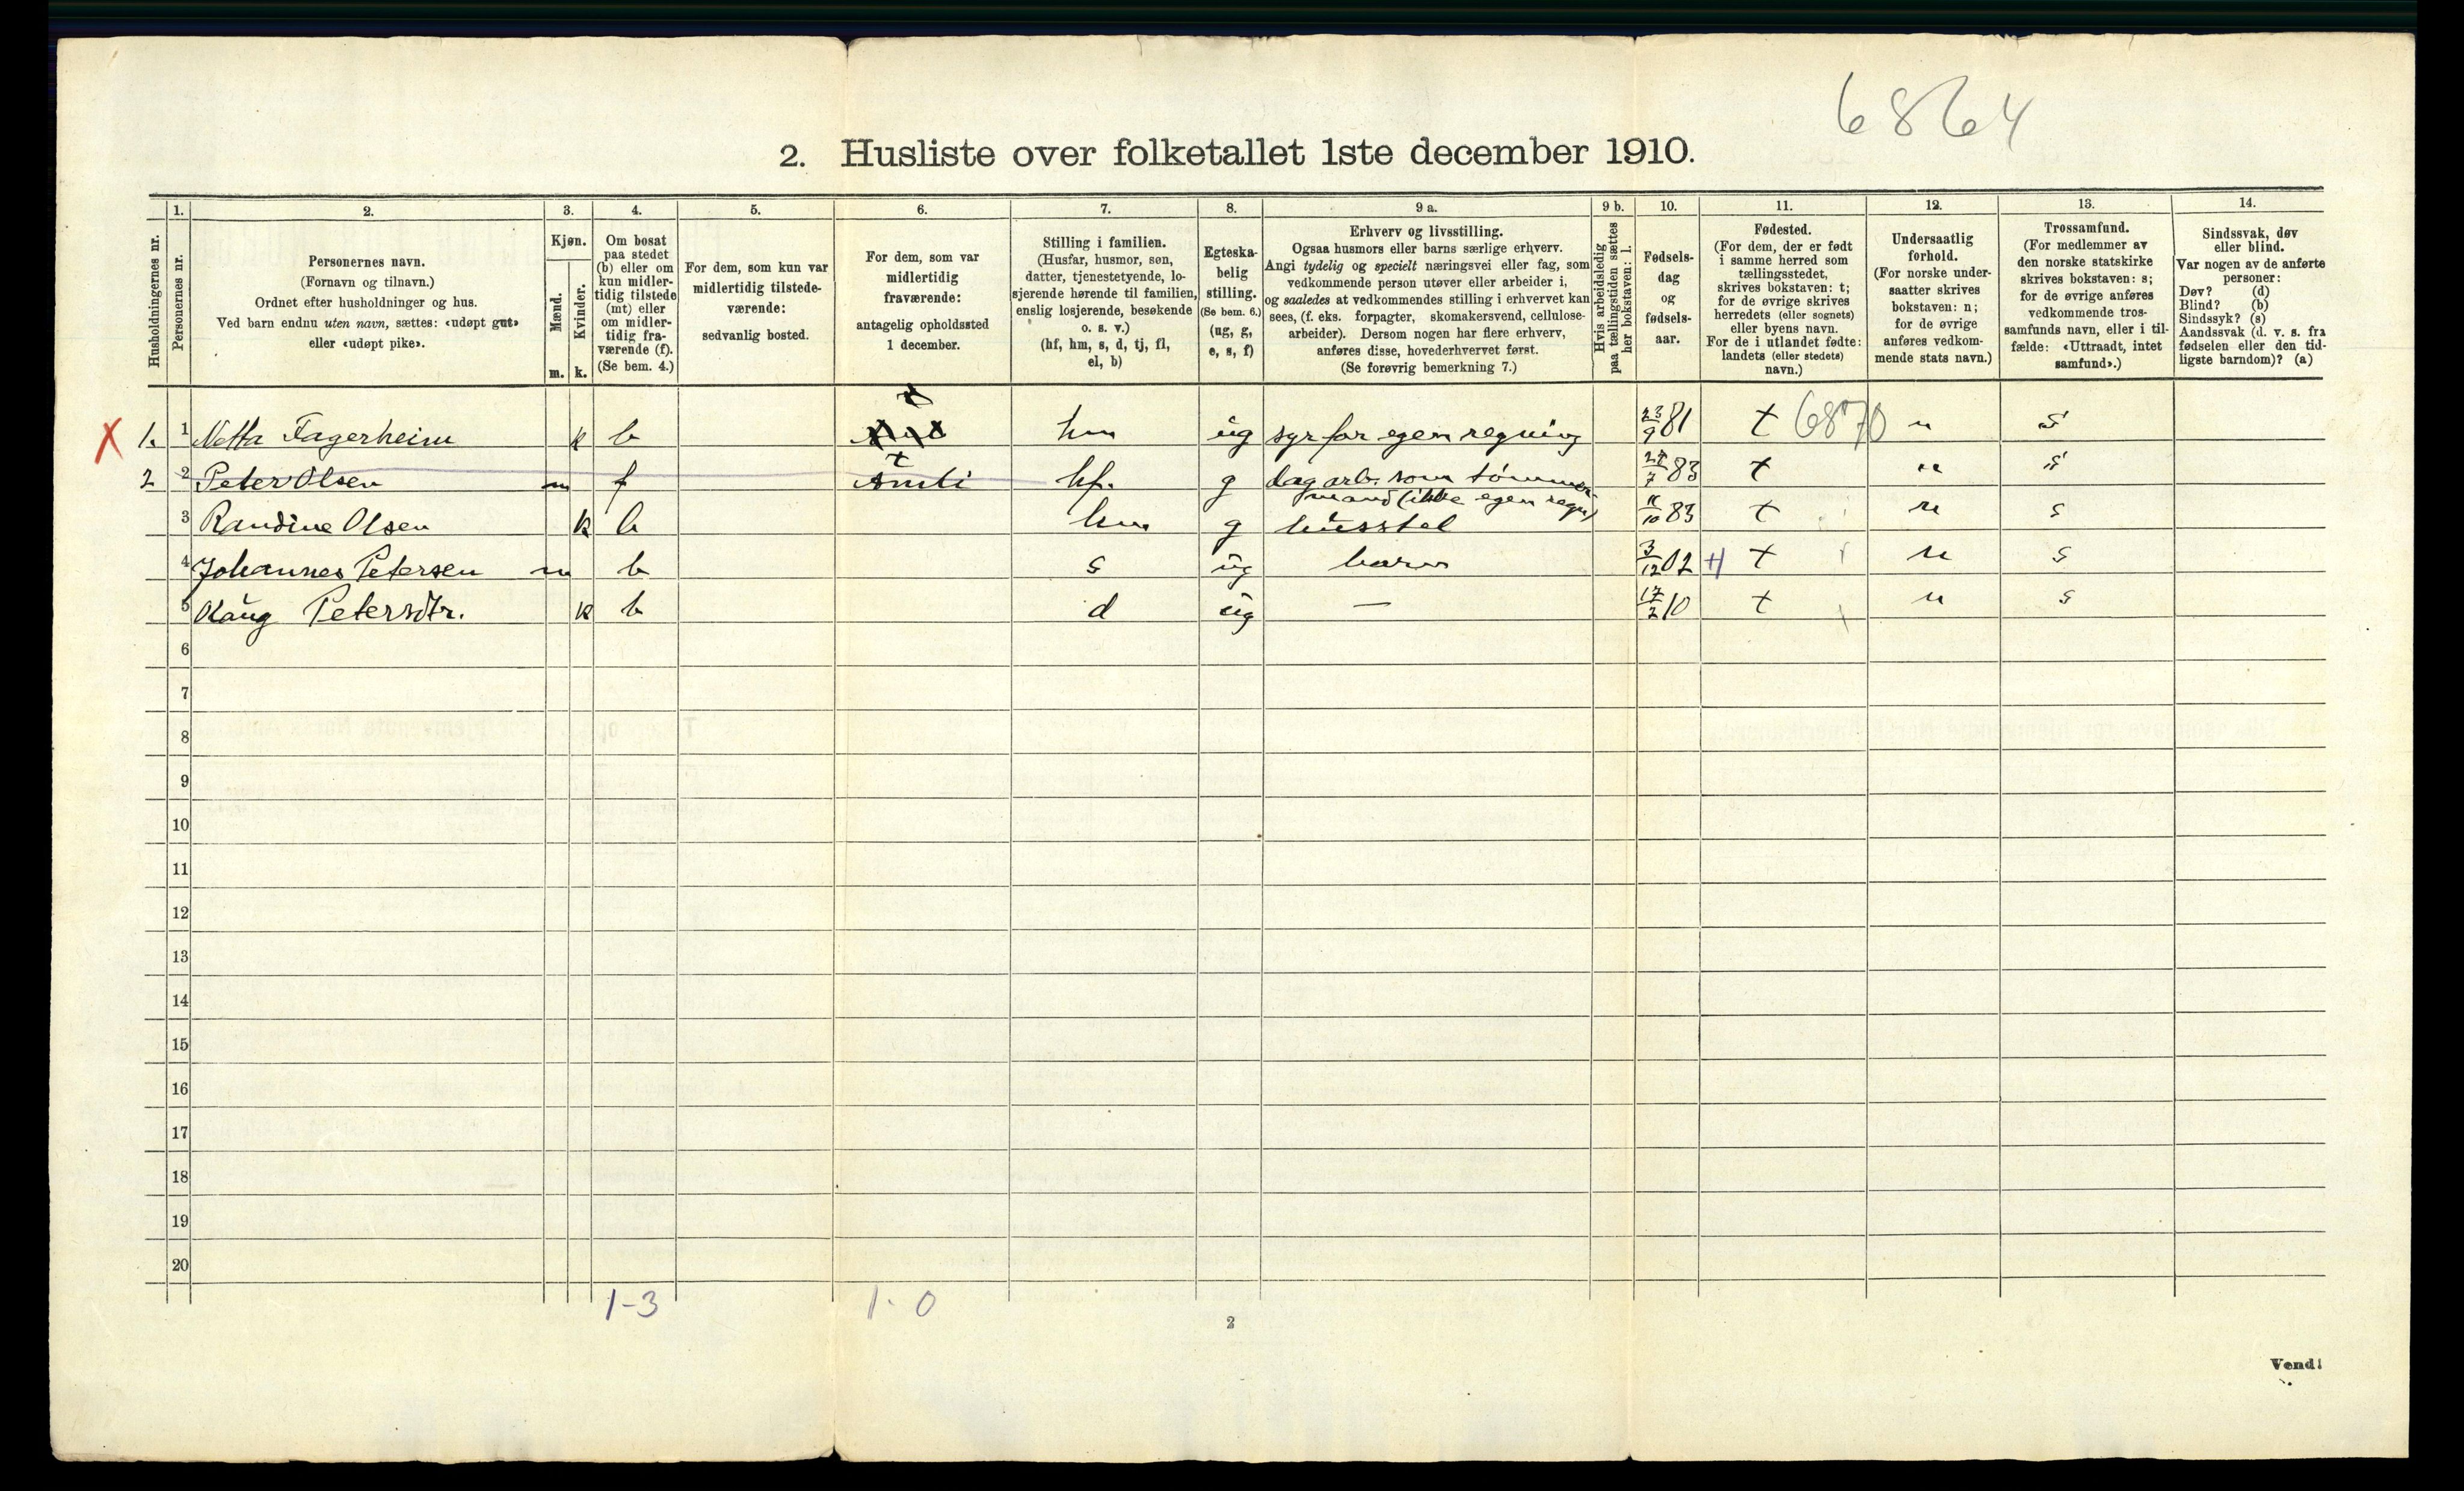 6864
2. Husliste over folketallet 1ste december 1910.
Husholdningernes nr.
1. Personernes nr.
2. Personernes navn.
(Fornavn og tilnavn.)
Ordnet efter husholdninger og hus.
Ved barn endnu uten navn, sættes: «udøpt gut»
eller «udøpt pike».
3. Kjøn.
Mænd. m.
Kvinder. k.
4. Om bosat
paa stedet
(b) eller om
kun midler-
tidig tilstede
(mt) eller
om midler-
tidig fra-
værende (f).
(Se bem. 4.)
5. For dem, som kun var
midlertidig tilstede-
værende:
sedvanlig bosted.
6. For dem, som var
midlertidig
fraværende:
antagelig opholdssted
1 december.
7. Stilling i familien.
(Husfar, husmor, søn,
datter, tjenestetyende, lo-
sjerende hørende til familien,
enslig losjerende, besøkende
o. s. v.)
(hf, hm, s, d, tj, fl,
el, b)
8. Egteska-
belig
stilling.
(Se bem. 6.)
(ug, g,
e, s, f)
9 a. Erhverv og livsstilling.
Ogsaa husmors eller barns særlige erhverv.
Angi tydelig og specielt næringsvei eller fag, som
vedkommende person utøver eller arbeider i,
og saaledes at vedkommendes stilling i erhvervet kan
sees, (f. eks. forpagter, skomakersvend, cellulose-
arbeider). Dersom nogen har flere erhverv,
anføres disse, hovederhvervet først.
(Se forøvrig bemerkning 7.)
9 b. Hvis arbeidsledig
paa tællingstiden sættes
her bokstaven: l.
10. Fødsels-
dag
og
fødsels-
aar.
11. Fødested.
(For dem, der er født
i samme herred som
tællingsstedet,
skrives bokstaven: t;
for de øvrige skrives
herredets (eller sognets)
eller byens navn.
For de i utlandet fødte:
landets (eller stedets)
navn.)
12. Undersaatlig
forhold.
(For norske under-
saatter skrives
bokstaven: n;
for de øvrige
anføres vedkom-
mende stats navn.)
13. Trossamfund.
(For medlemmer av
den norske statskirke
skrives bokstaven: s;
for de øvrige anføres
vedkommende tros-
samfunds navn, eller i til-
fælde: «Uttraadt, intet
samfund».)
14. Sindssvak, døv
eller blind.
Var nogen av de anførte
personer:
Døv? (d)
Blind? (b)
Sindssyk? (s)
Aandssvak (d. v. s. fra
fødselen eller den tid-
ligste barndom)? (a)
X 1. 1 Netta Fagerheim k b hm ug syr for egen regning 23/9 81 t 6870 n s
2 2 Peter Olsen m f Amli t hf. g dagarb. som tømmer-
mand (ikke egen regn) 7 83 t n s
3 Randine Olsen k b hm g husstel 11/10 83 t n s
4 Johannes Petersen m b s ug barn 3/12 02 t n s
5 Petersdtr. k b d ug — 17/2 10 t n s
6
7
8
9
10
11
12
13
14
15
16
17
18
19
20
1-3 1-0
2
Vend!